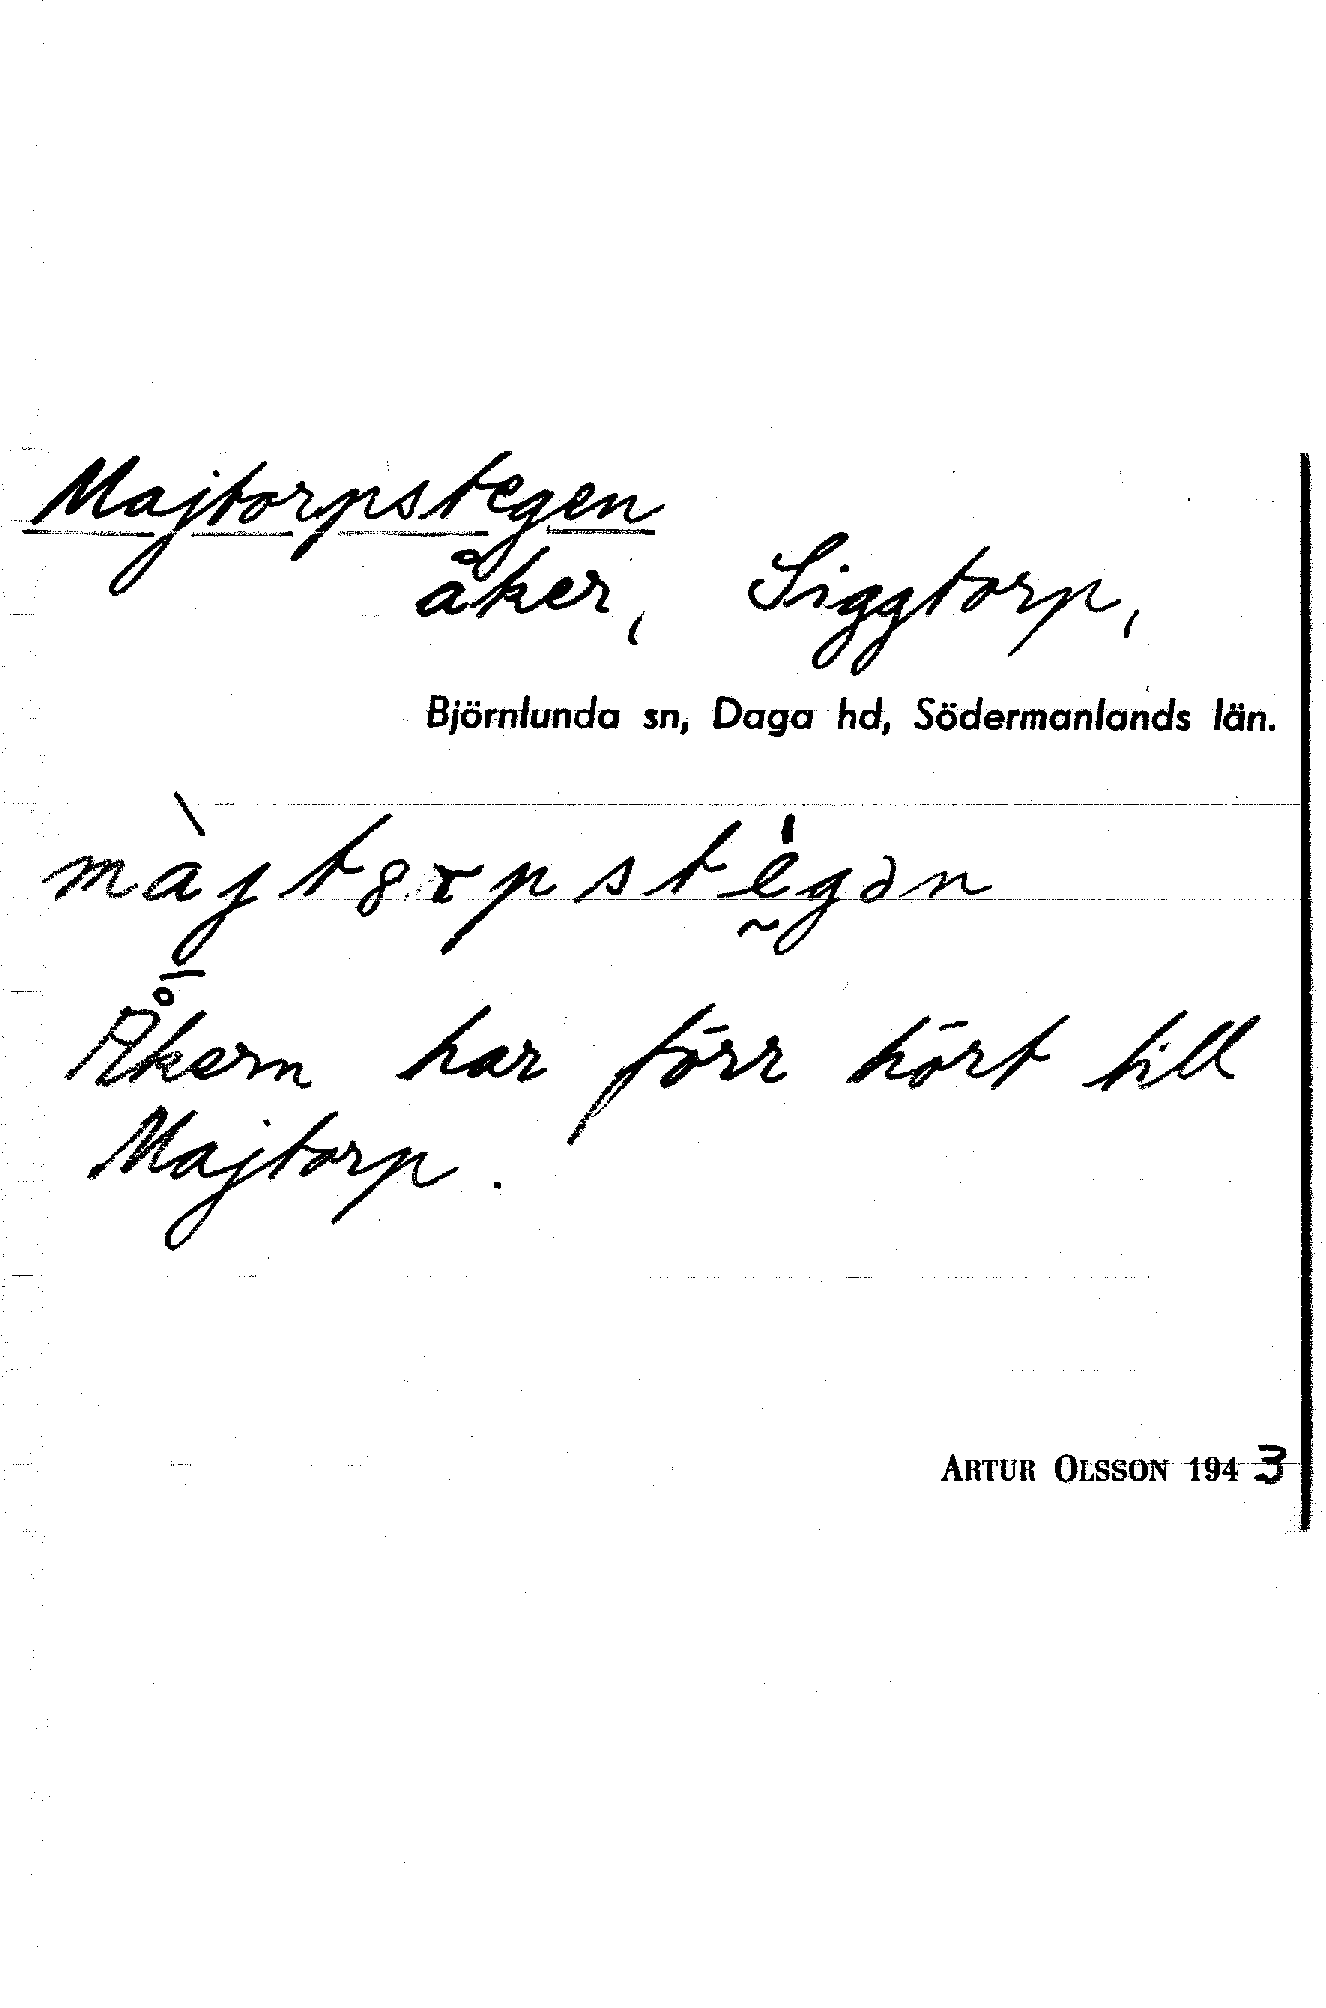 Majtorpstegen
åker, Siggtorp,
Björnlunda sn, Daga hd, Södermanlands län.
màjt8rpstègən
Åkern har förr hört till
Majtorp.
ARTUR OLSSON 1943